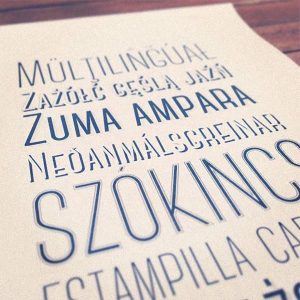 MÜLTILIŃGÜAL
ZAŻÓŁĆ GĘŚLĄ JAŹŃ
ZUMA AMPARA
NEÐANMÁLSGREINAR
SZÓKINCS
ESTAMPILLA